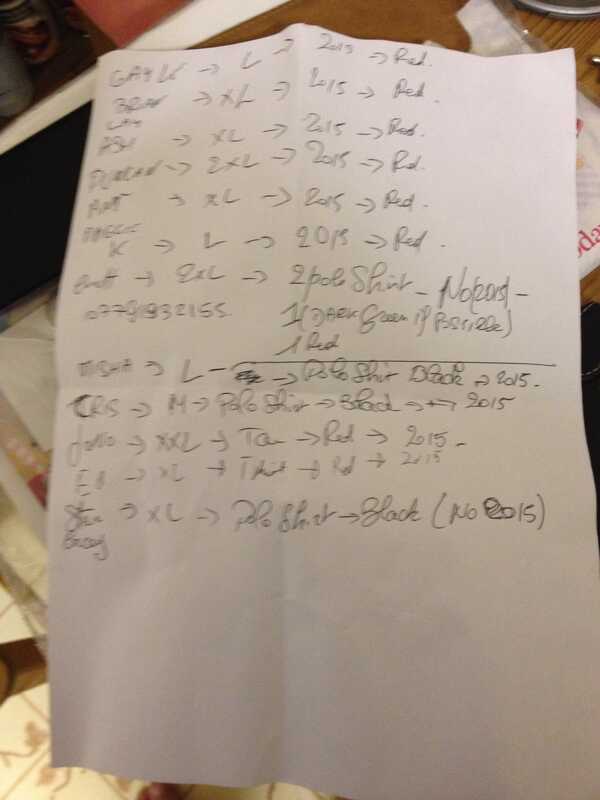 GAY K → L → 2015 → Red.
BRAN → XL → 2015 → Red.
ASH → XL → 2015 → Red.
DUNCAN → 2XL → 2015 → Red.
ANT → XL → 2015 → Red.
K → L → 2015 → Red.
→ 2XL → 2 polo Shirt -
07791932155. 1 (DARK Green if Possible)
1 Red
MISHA → L - → Polo Shirt Black → 2015.
CRIS → M → Polo Shirt → Black → 2015
→ XXL → → Red → 2015 -
→ XL → T Shirt → Red → 2015
→ XL → Polo Shirt → Black (No 2015)